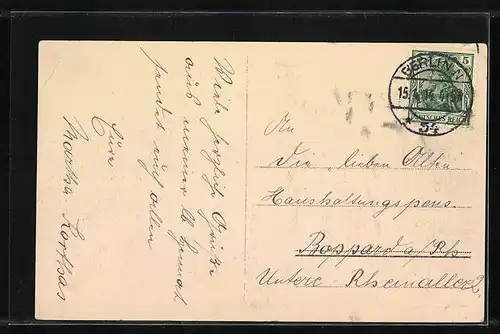 Viele herzliche Grüße
aus meiner lb. Heimat
sendet auf allen
Eure
Martha Korthas
BERLIN N
15.
54
5
DEUTSCHES REICH
An
Die lieben Alten
Haushaltungspens.
Boppard a/Rh
Untere Rheinallee